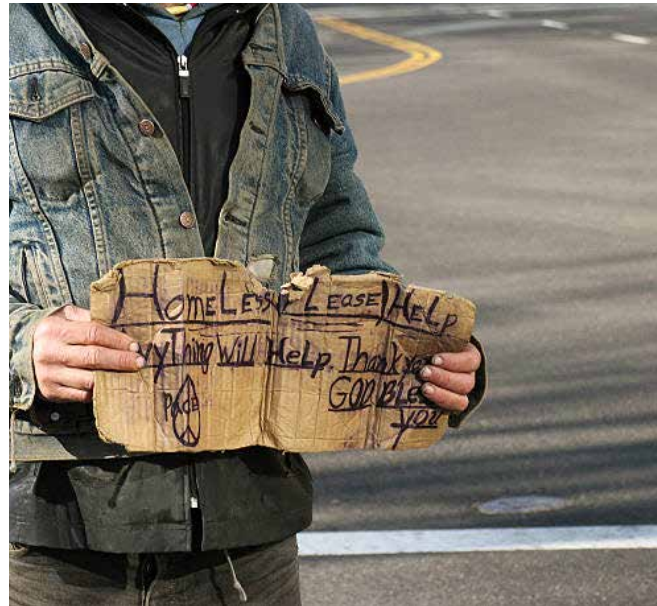 HomeLess PLease HeLp
AnyThing WiLL HeLp. Thank you
GOD BLESS
PACE
you